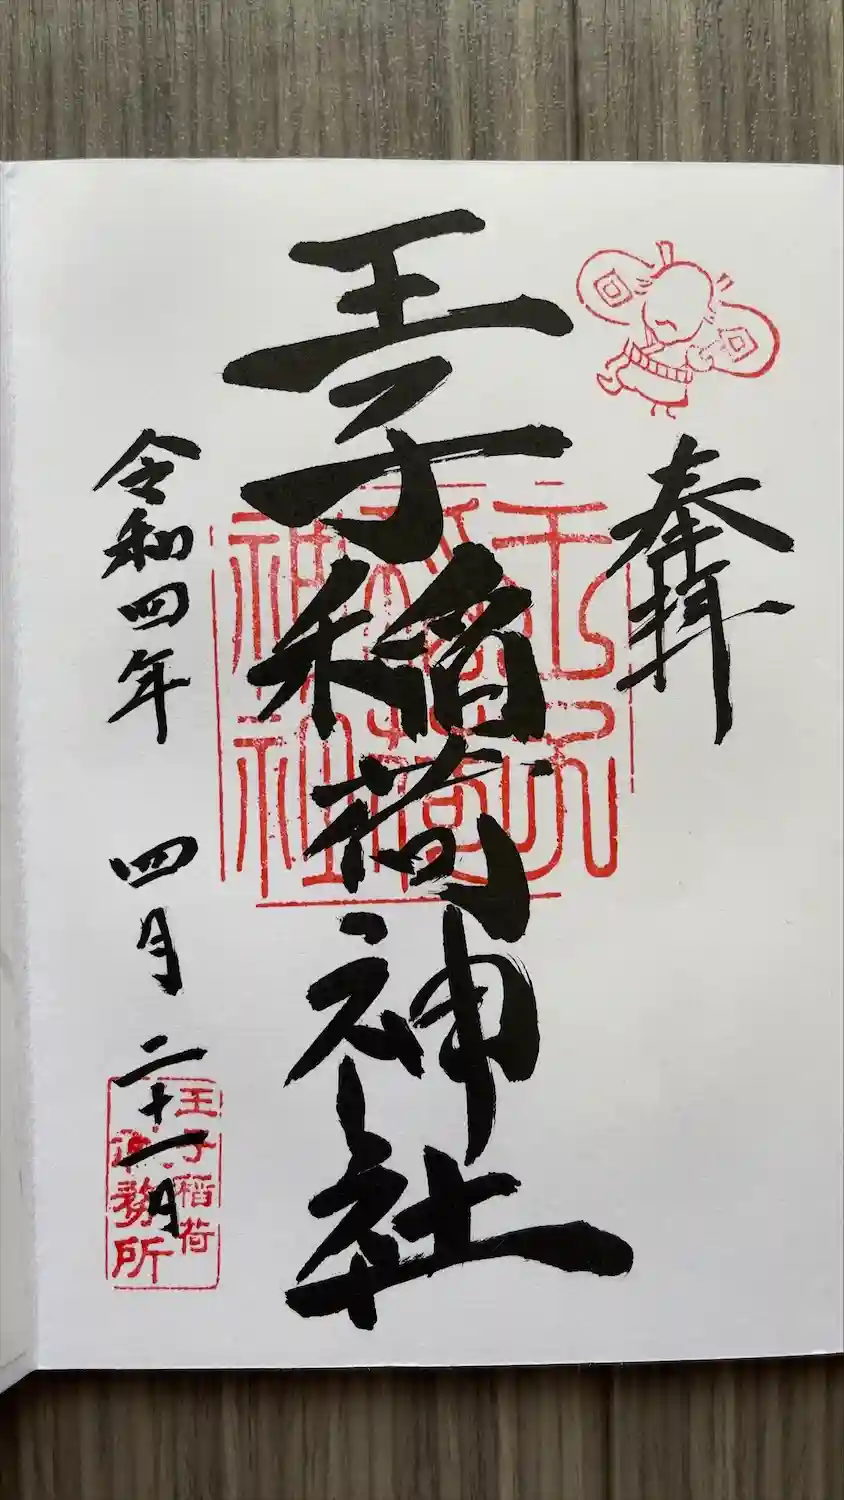 奉拝
王子稲荷神社
王子
稲荷
神社
令和四年 四月 二十一日
王子稲荷
社務所